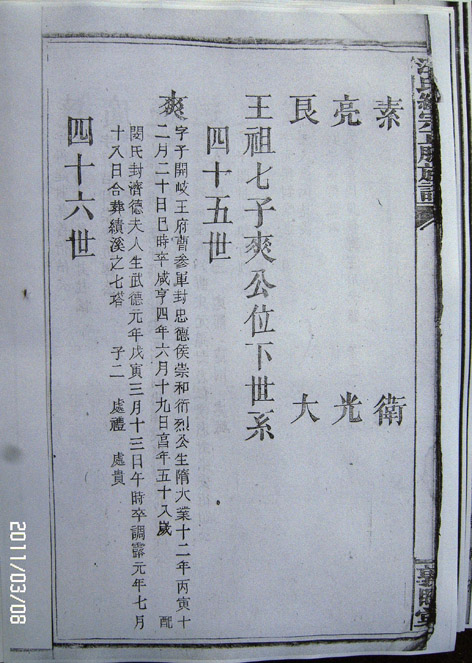 素 衛
亮 光
良 大
王祖七子爽公位下世系
四十五世
爽
字子開岐王府曹參軍封忠德侯崇和衍烈公生隋大業十二年丙寅十
二月二十日巳時卒咸亨四年六月十九日享年五十八歲 配
閔氏封濟德夫人生武德元年戊寅三月十三日午時卒調露元年七月
十八日合葬績溪之七塔 子二 處禮 處貴
四十六世
2011/03/08